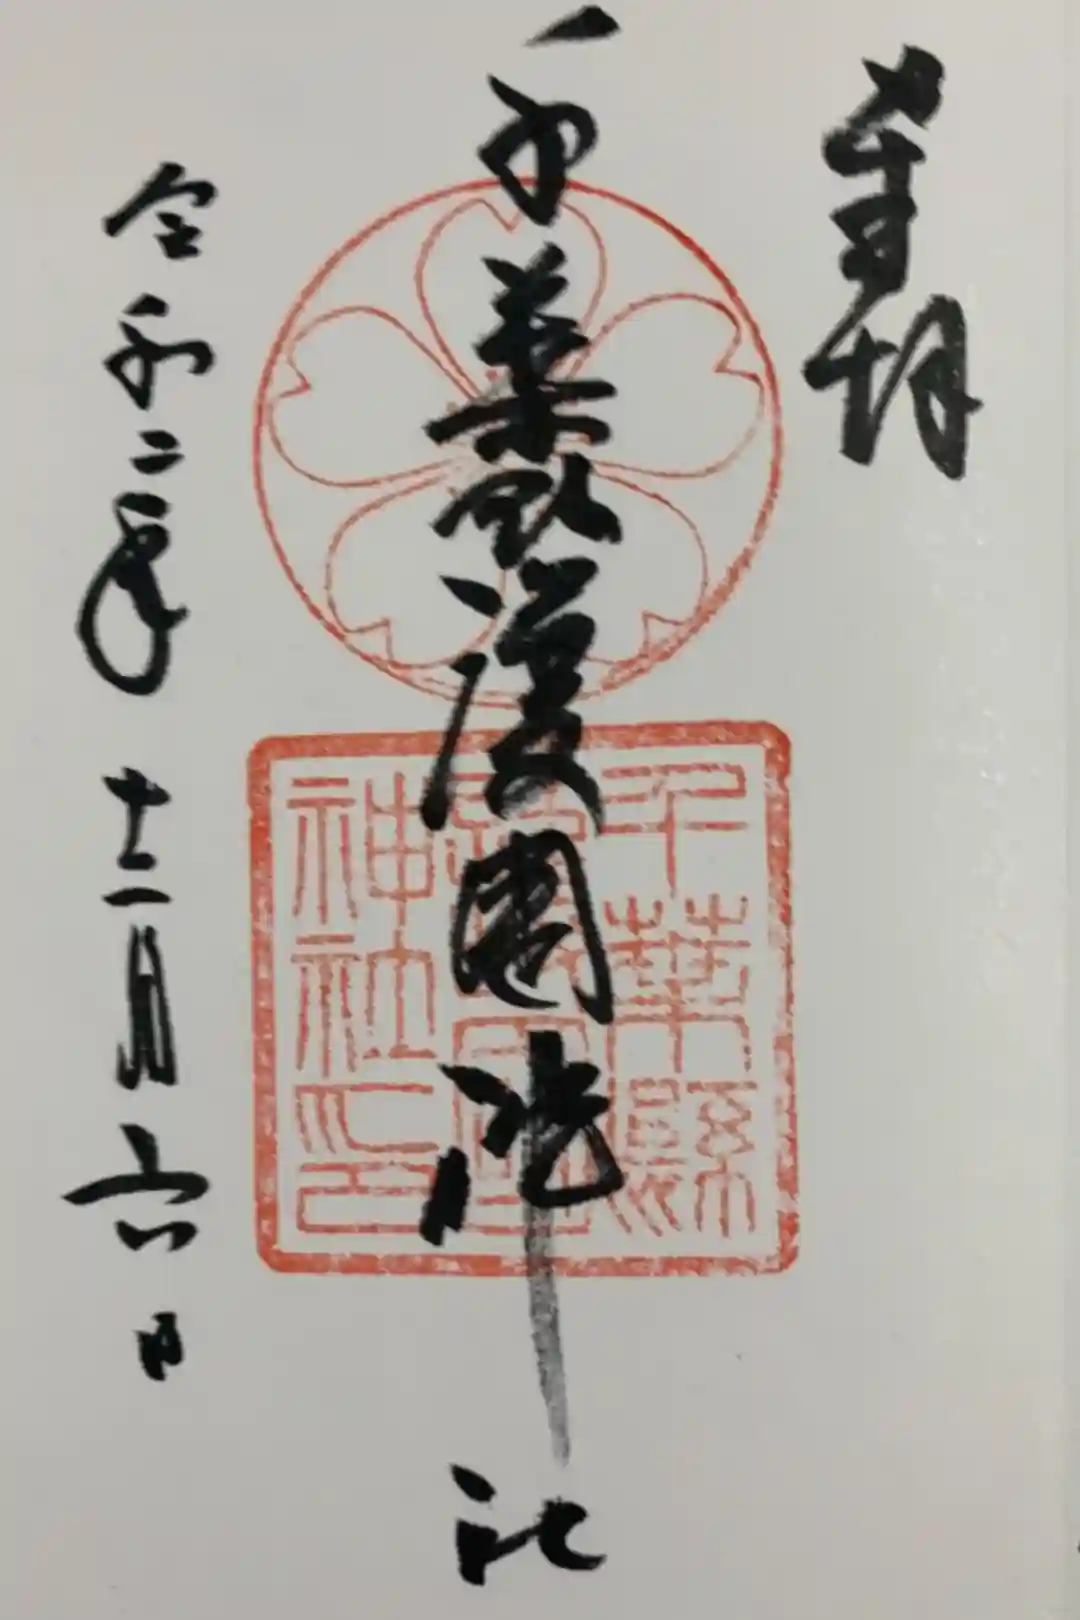 奉拝
千葉縣護國神社
令和二年十二月六日
千葉縣
護國
神社之印